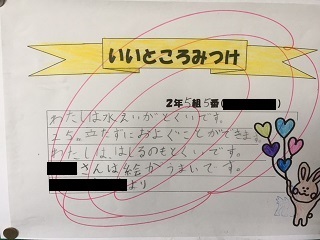 いいところみつけ
2年5組5番(
わたしは水えいがとくいです。
25。立たずにおよぐことができます。
わたしは、はしるのもとくいです。
さんは絵がうまいです。
より